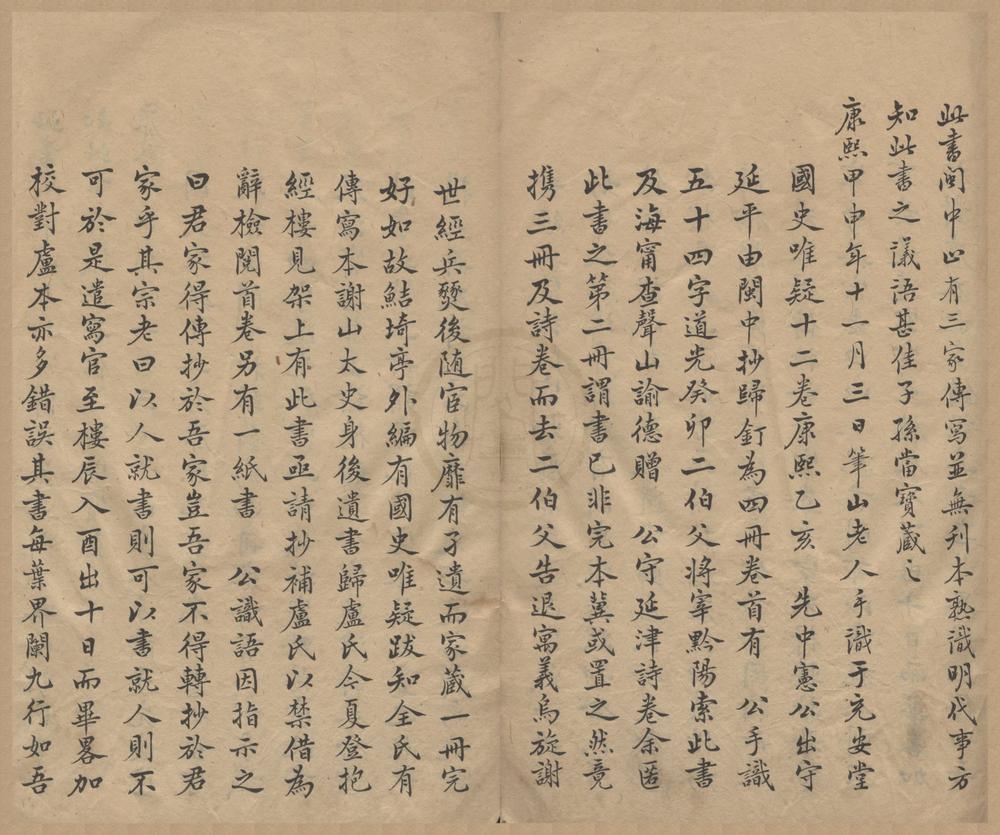 此書閩中止有三家傳寫並無刋本熟識明代事方
知此書之議語甚佳子孫當寳藏之
康熙甲申年十一月三日筆山老人手識于充安堂
國史唯疑十二卷康熙乙亥 先中憲公出守
延平由閩中抄歸釘為四冊卷首有 公手識
五十四字道光癸卯二伯父將宰黔陽索此書
及海甯查聲山諭德贈 公守延津詩卷余匿
此書之第二冊謂書已非完本冀或置之然竟
携三冊及詩卷而去二伯父告退寓義烏旋謝
世經兵燹後随宦物靡有孑遺而家蔵一冊完
好如故鮚埼亭外編有國史唯疑跋知全氏有
傳寫本謝山太史身後遺書歸盧氏今夏登抱
經樓見架上有此書亟請抄補盧氏以禁借為
辭檢閱首卷另有一紙書 公識語因指示之
曰君家得傳抄於吾家豈吾家不得轉抄於君
家乎其宗老曰以人就書則可以書就人則不
可於是遣寫官至樓辰入酉出十日而畢畧加
校對盧本亦多錯誤其書每葉界闌九行如吾